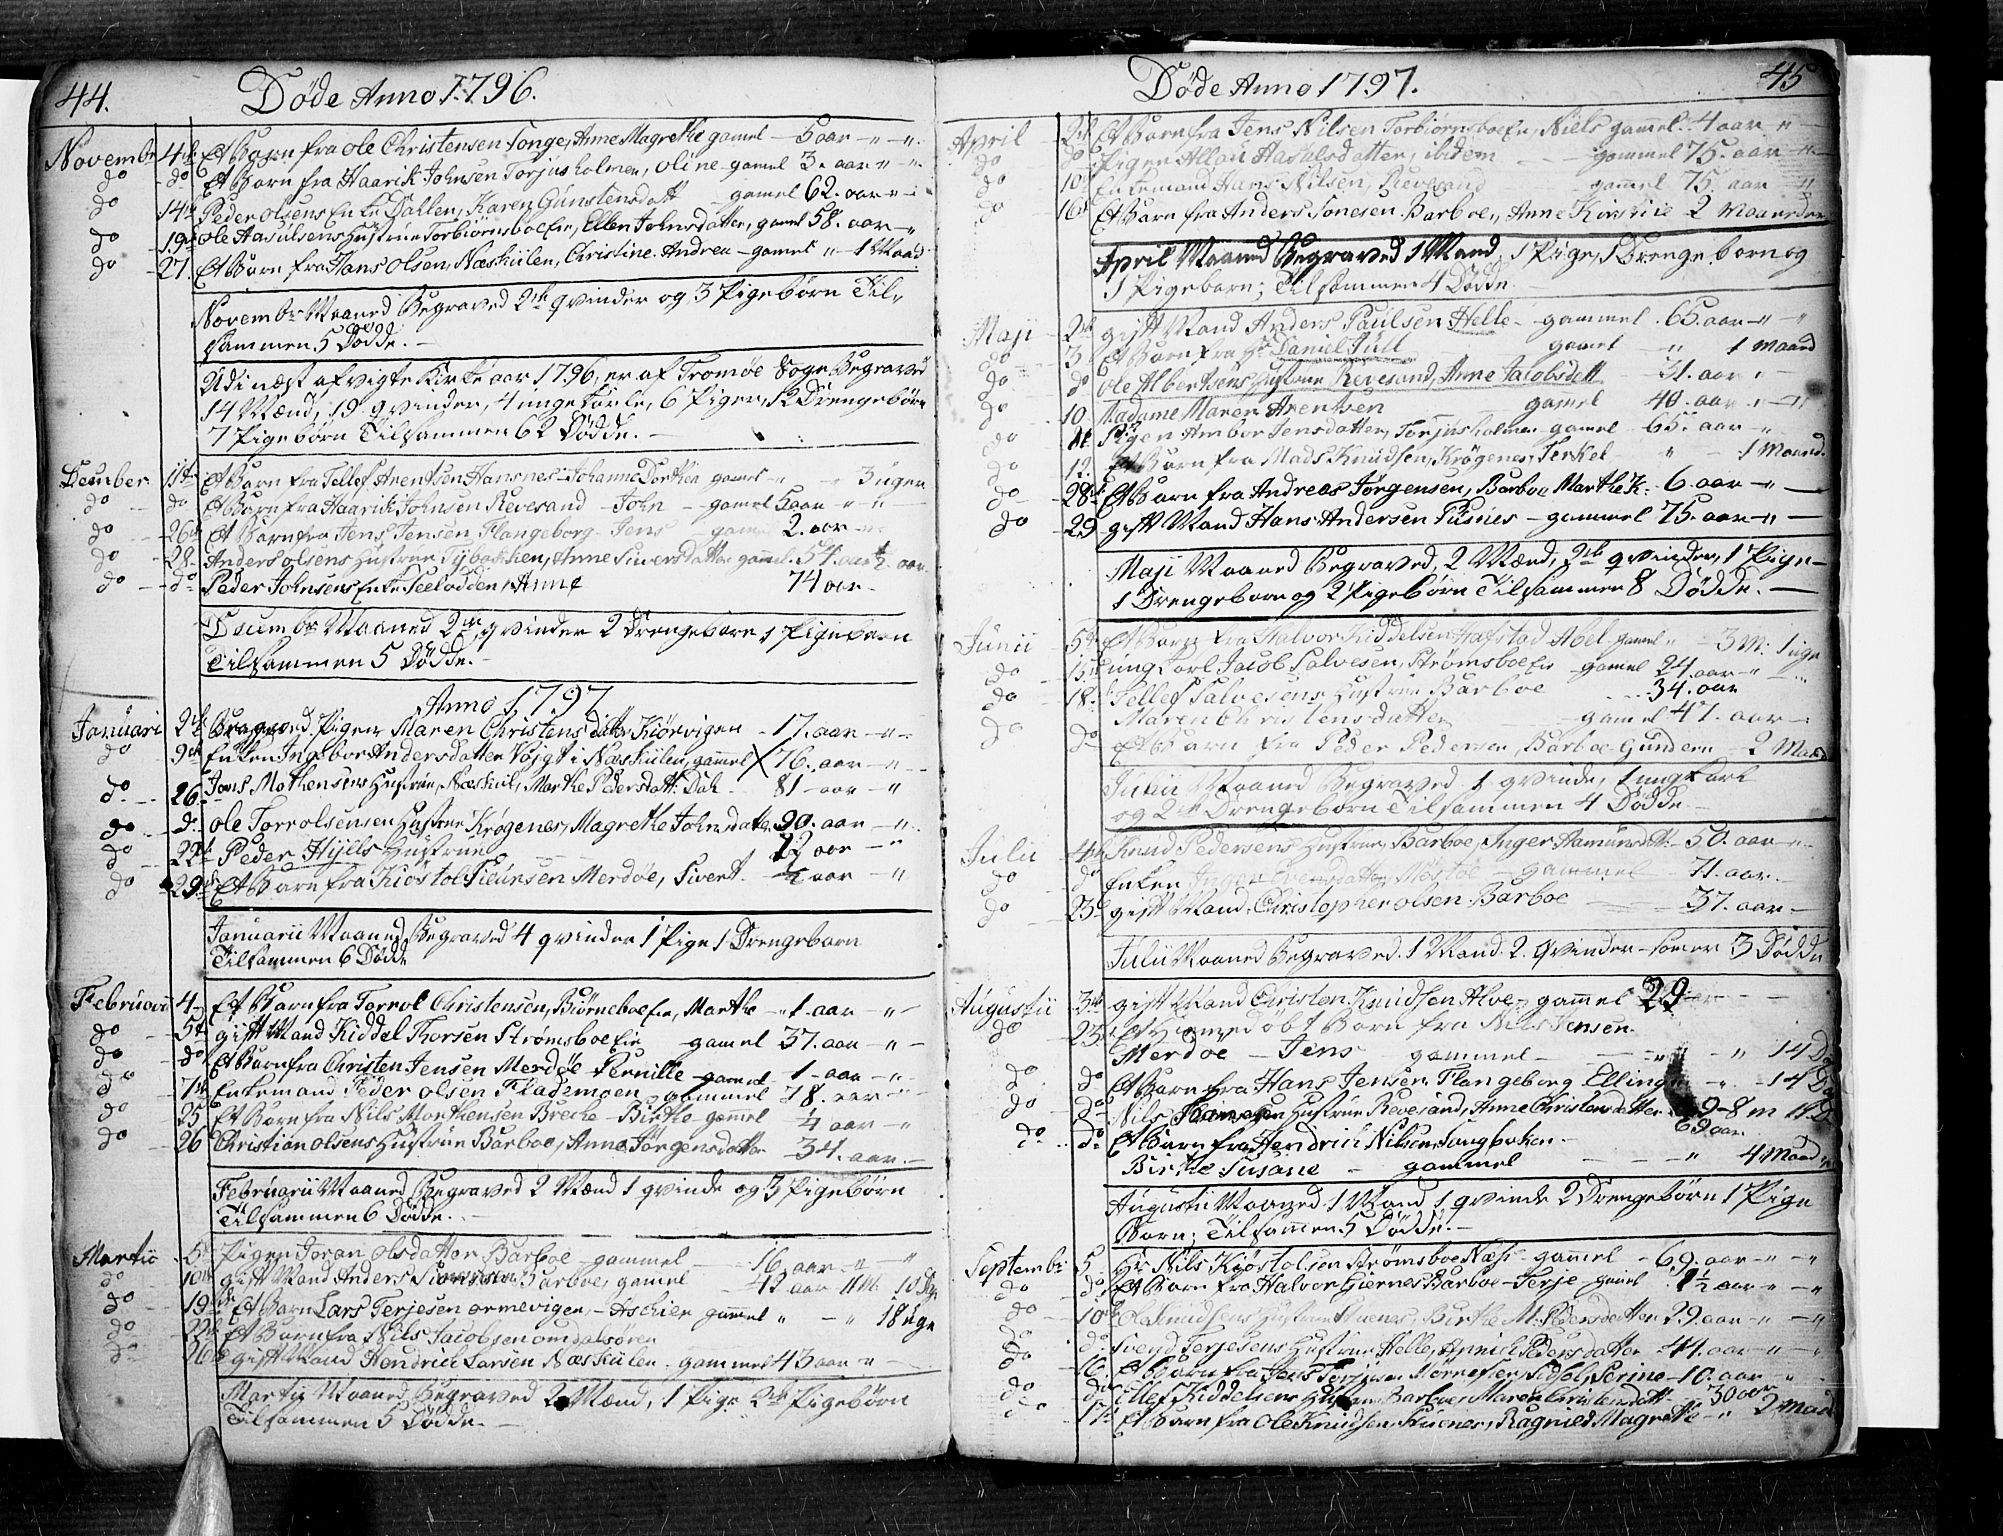 44.
Døde Anno 1796.
Novembr 4de Et Barn fra Ole Christensen Songe, Anne Magrethe gamel - 5 aar - " - "
do - do Et Barn fra Haarik Johnsen Torjusholmen, Oline - gamel 3. aar - " - "
do 14de Peder Olsens Enke Dahlen, Karen Gunstensdatt gamel 62. aar - "
do - 19de Ole Aasulsens Hustrue Torbiørnsboe Eie, Ellen Johnsdatter, gamel 58. aar - "
do - 27 Et Barn fra Hans Olsen, Næskiilen, Christine Andrea - gamel " - 1 Maad
Novembr Maaned Begraved 2de qvinder og 3 Pigebørn Til-
sammen 5 Dødde. -
Udi næst afvigte Kirke aar 1796, er af Tromøe Sogn Begraved
14 Mænd, 19 qvinder, 4 unge Karle, 6 Piger, 12 Drengebørn
7 Pigebørn Tilsammen 62 Dødde. -
December 11te Et Barn fra Tellef Arentsen Hansnes - Johanne Dorthea gamel - " - 3 uger
do - do Et Barn fra Haarik Johnsen Revesand - John - gamel 5 aar - " - "
do - 26de Et Barn fra Jens Jensen Flangeborg - Jens gamel 2. aar - "
do - 28. Anders Olsens Hustrue Tybakken, Anne Siversdatter gamel. 54. aar
do - do Peder Johnsens Enke Seelodden, Anne 74 aar -
Decembr Maaned 2de qvinder 2 Drengebørn 1 Pigebarn
Tilsammen 5 Dødde. -
Anno 1797
Januari 2de Begraved Pigen Maren Christensdatter Kiørvigen - 17. aar - "
do - 9de Enken Ingebor Andersdatter Vøjgt i Næskiilen, gammel 76. aar - "
do - 26. Jens Mathensens Hustrue, Næskiil, Marthe Pedersdatt: Dah 81 - aar - "
do - do Ole Torrolsensen Hustrue Krøgenes, Magrethe Johnsdatter 90. aar - "
do 22de Peder Hjells Hustrue 72 aar - "
do - 29de Et Barn fra Kiøstol Siversen Merdøe, Sivert - aar - "
Januarii Maaned Begraved 4 qvinder 1 Pige 1 Drengebarn
Tilsammen 6 Dødde
Februarii 4 - Et Barn fra Torrol Christensen, Biørneboe Eie, Marthe - 1. aar - "
do - 5te gift Mand Kiddel Thorsen Strømsboe Eie gamel 37. aar - " -
do - do Et Barn fra Christen Jensen Merdøe - Pernille - gamel - 1 - aar - "
do - 7de Enkemand Peder Olsen Flademoen - gammel 78. aar - "
do 25 Et Barn fra Nils Morthensen Brecke - Birthe - gamel 1/4 aar - "
do - 26 Christian Olsens Hustrue Barboe, Anne Jørgensdatter - 34. aar. -
Februarii Maaned Begraved 2 Mænd 1 qvinde og 3 Pigebørn
Tilsammen 6 Dødde. -
Martii 5te Pigen Joran Olsdatter Barboe gammel - 16. aar - " - "
do 10de gift Mand Anders Barboe, gamel - 42 aar 11 M. 10 Dge
do - 19de Et Barn Lars Terjesen Ormevigen - Aschier gammel " - " 18 uger
do - 22de Et Barn fra Nils Jacobsen Omdalsøren
do - 26de gift Mand Hendrich Larsen Næskiilen - gammel 43 aar - "
Martii Maaned Begraved 2 Mænd, 1 Pige 2de Pigebørn
Tilsammen 5 Dødde. -
45
Døde Anno 1797.
April 2de Et Barn fra Jens Nilsen Torbiørnsboe Eie, Niels gammel - 4 aar - "
do do Pigen Aslou Haskelsdatter, ibidem - gammel 75. aar - "
do 10de Enkemand Hans Nilsen, Revesand gammel 75. aar - "
do - 16de Et Barn fra Anders Tonesen Barboe, Anne Kirstine - 2 Maaneder
April Maaned Begraved 1 Mand, 1 Pige, 1 Drenge barn og
1 Pigebarn; Tilsammen 4 Dødde.
Maji - 2de gift Mand Anders Paulsen Helle - gammel - 65. aar - " - "
do - 3. Et Barn fra Hr Daniel Juell gamel " 1 Maand
do do Ole Albertsens Hustrue Revesand, Anne Jacobsdatt - 31. aar "
do 10. Madame Maren Arentsen gamel 40. aar - " - "
do 11. Pigen Anbor Jensdatter, Torjusholmen - gammel - 65. aar - "
do 12. Et Barn fra Mads Knudsen, Krøgenes, Terkel - " - 1 Maaned.
do - 28de Et Barn fra Andreas Jørgensen, Barboe Marthe K: - 6. aar - " -
do - 29 gift Mand Hans Andersen Pusnes - gammel 75. aar - " -
Maji Maaned Begraved, 2 Mænd, 2de qvinder, 1 Pige -
1 Drengebarn og 2 Pigebørn Tilsammen 8 Dødde. -
Junii - 5te Et Barn fra Halvor Kiddelsen Hafstad Abel gamel " - 3 M: 1 uge
do - 15de ung Karl Jacob Salvesen, Strømsboe Eie - gamel 24. aar - "
do - 18. Tellef Salvesens Hustrue Barboe - 34. aar
Maren Christensdatter - gamel 47. aar -
do - do Et Barn fra Peder Pedersen, Barboe Gunder - 2 Maaned
Junii Maaned Begraved 1 qvinde, 1 ung Karl
og 2de Drengebørn Tilsammen 4 Dødde -
Julii 4de Knud Pedersens Hustrue Barboe, Inger Aamundsdt: - 50. aar - "
do - do Enken Inger Evensdatter, - gammel 71. aar. -
do - 23de gift Mand Christopher Olsen Barboe - 37. aar -
Julii Maaned Begraved. 1 Mand 2. qvinder - som er 3 Dødde
Augustii 3de gift Mand Christen Knudsen Alve - gammel 29 -
do - 23. Et Hiemmedøbt Barn fra Nils Jensen
Merdøe - Jens gammel - " - " 14 Da
do - do Et Barn fra Hans Jensen Flangeborg Elling - " - 14 D
do - do Nils Hustrue Revesand, Anne Christensdatter - 8 M 11 D
69 aar
do - do Et Barn fra Hendrich Nilsen Sangboken -
Birthe Susane - gammel - " 4 Maaned
Augustii Maaned 1 Mand 1 qvinde 2 Drengebørn 1 Pige
Barn; Tilsammen 5 Dødde. -
Septembr 5. Hr Nils Kiøstolsen Strømsboe Næss - gammel - 69. aar - " - "
do - do Et Barn fra Halvor Giernes Barboe - Terje - gamel 1 1/2 aar - " - "
do - 10de Ole Knudsens Hustrue Stuenes, Birthe M. Pedersdatter 29. aar - " - "
do do Svend Terjesens Hustrue Helle, Anne Pedersdatter - 44. aar - " - "
do - 16. Et Barn fra Jens Terjesen Sidsel Serine - 10. aar - "
do do Ellef Kiddelsens Hustrue Barboe, Maren Christensdatt - 30 aar
do - 17de Et Barn fra Ole Knudsen, Stuenes, Ragnild Magrethe - " 2 Maaned